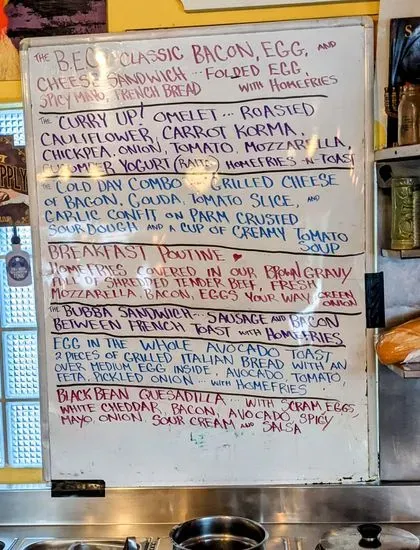 THE B.E.C. CLASSIC BACON, EGG, AND
CHEESE SANDWICH... FOLDED EGG,
SPICY MAYO, FRENCH BREAD WITH HOMEFRIES
THE "CURRY UP!" OMELET... ROASTED
CAULIFLOWER, CARROT KORMA,
CHICKPEA, ONION, TOMATO, MOZZARELLA,
CUCUMBER YOGURT (RAITA) HOMEFRIES -N- TOAST
THE COLD DAY COMBO GRILLED CHEESE
OF BACON, GOUDA, TOMATO SLICE, AND
GARLIC CONFIT ON PARM CRUSTED
SOURDOUGH AND A CUP OF CREAMY TOMATO
SOUP
BREAKFAST POUTINE ♥
HOMEFRIES COVERED IN OUR BROWN GRAVY
FULL OF SHREDDED TENDER BEEF, FRESH
MOZZARELLA, BACON, EGGS YOUR WAY, GREEN
ONION
THE BUBBA SANDWICH... SAUSAGE AND BACON
BETWEEN FRENCH TOAST WITH HOMEFRIES
EGG IN THE WHOLE AVOCADO TOAST
2 PIECES OF GRILLED ITALIAN BREAD WITH AN
OVER MEDIUM EGG INSIDE, AVOCADO, TOMATO,
FETA, PICKLED ONION... WITH HOMEFRIES
BLACK BEAN QUESADILLA... WITH SCRAM EGGS,
WHITE CHEDDAR, BACON, AVOCADO, SPICY
MAYO, ONION SOUR CREAM AND SALSA